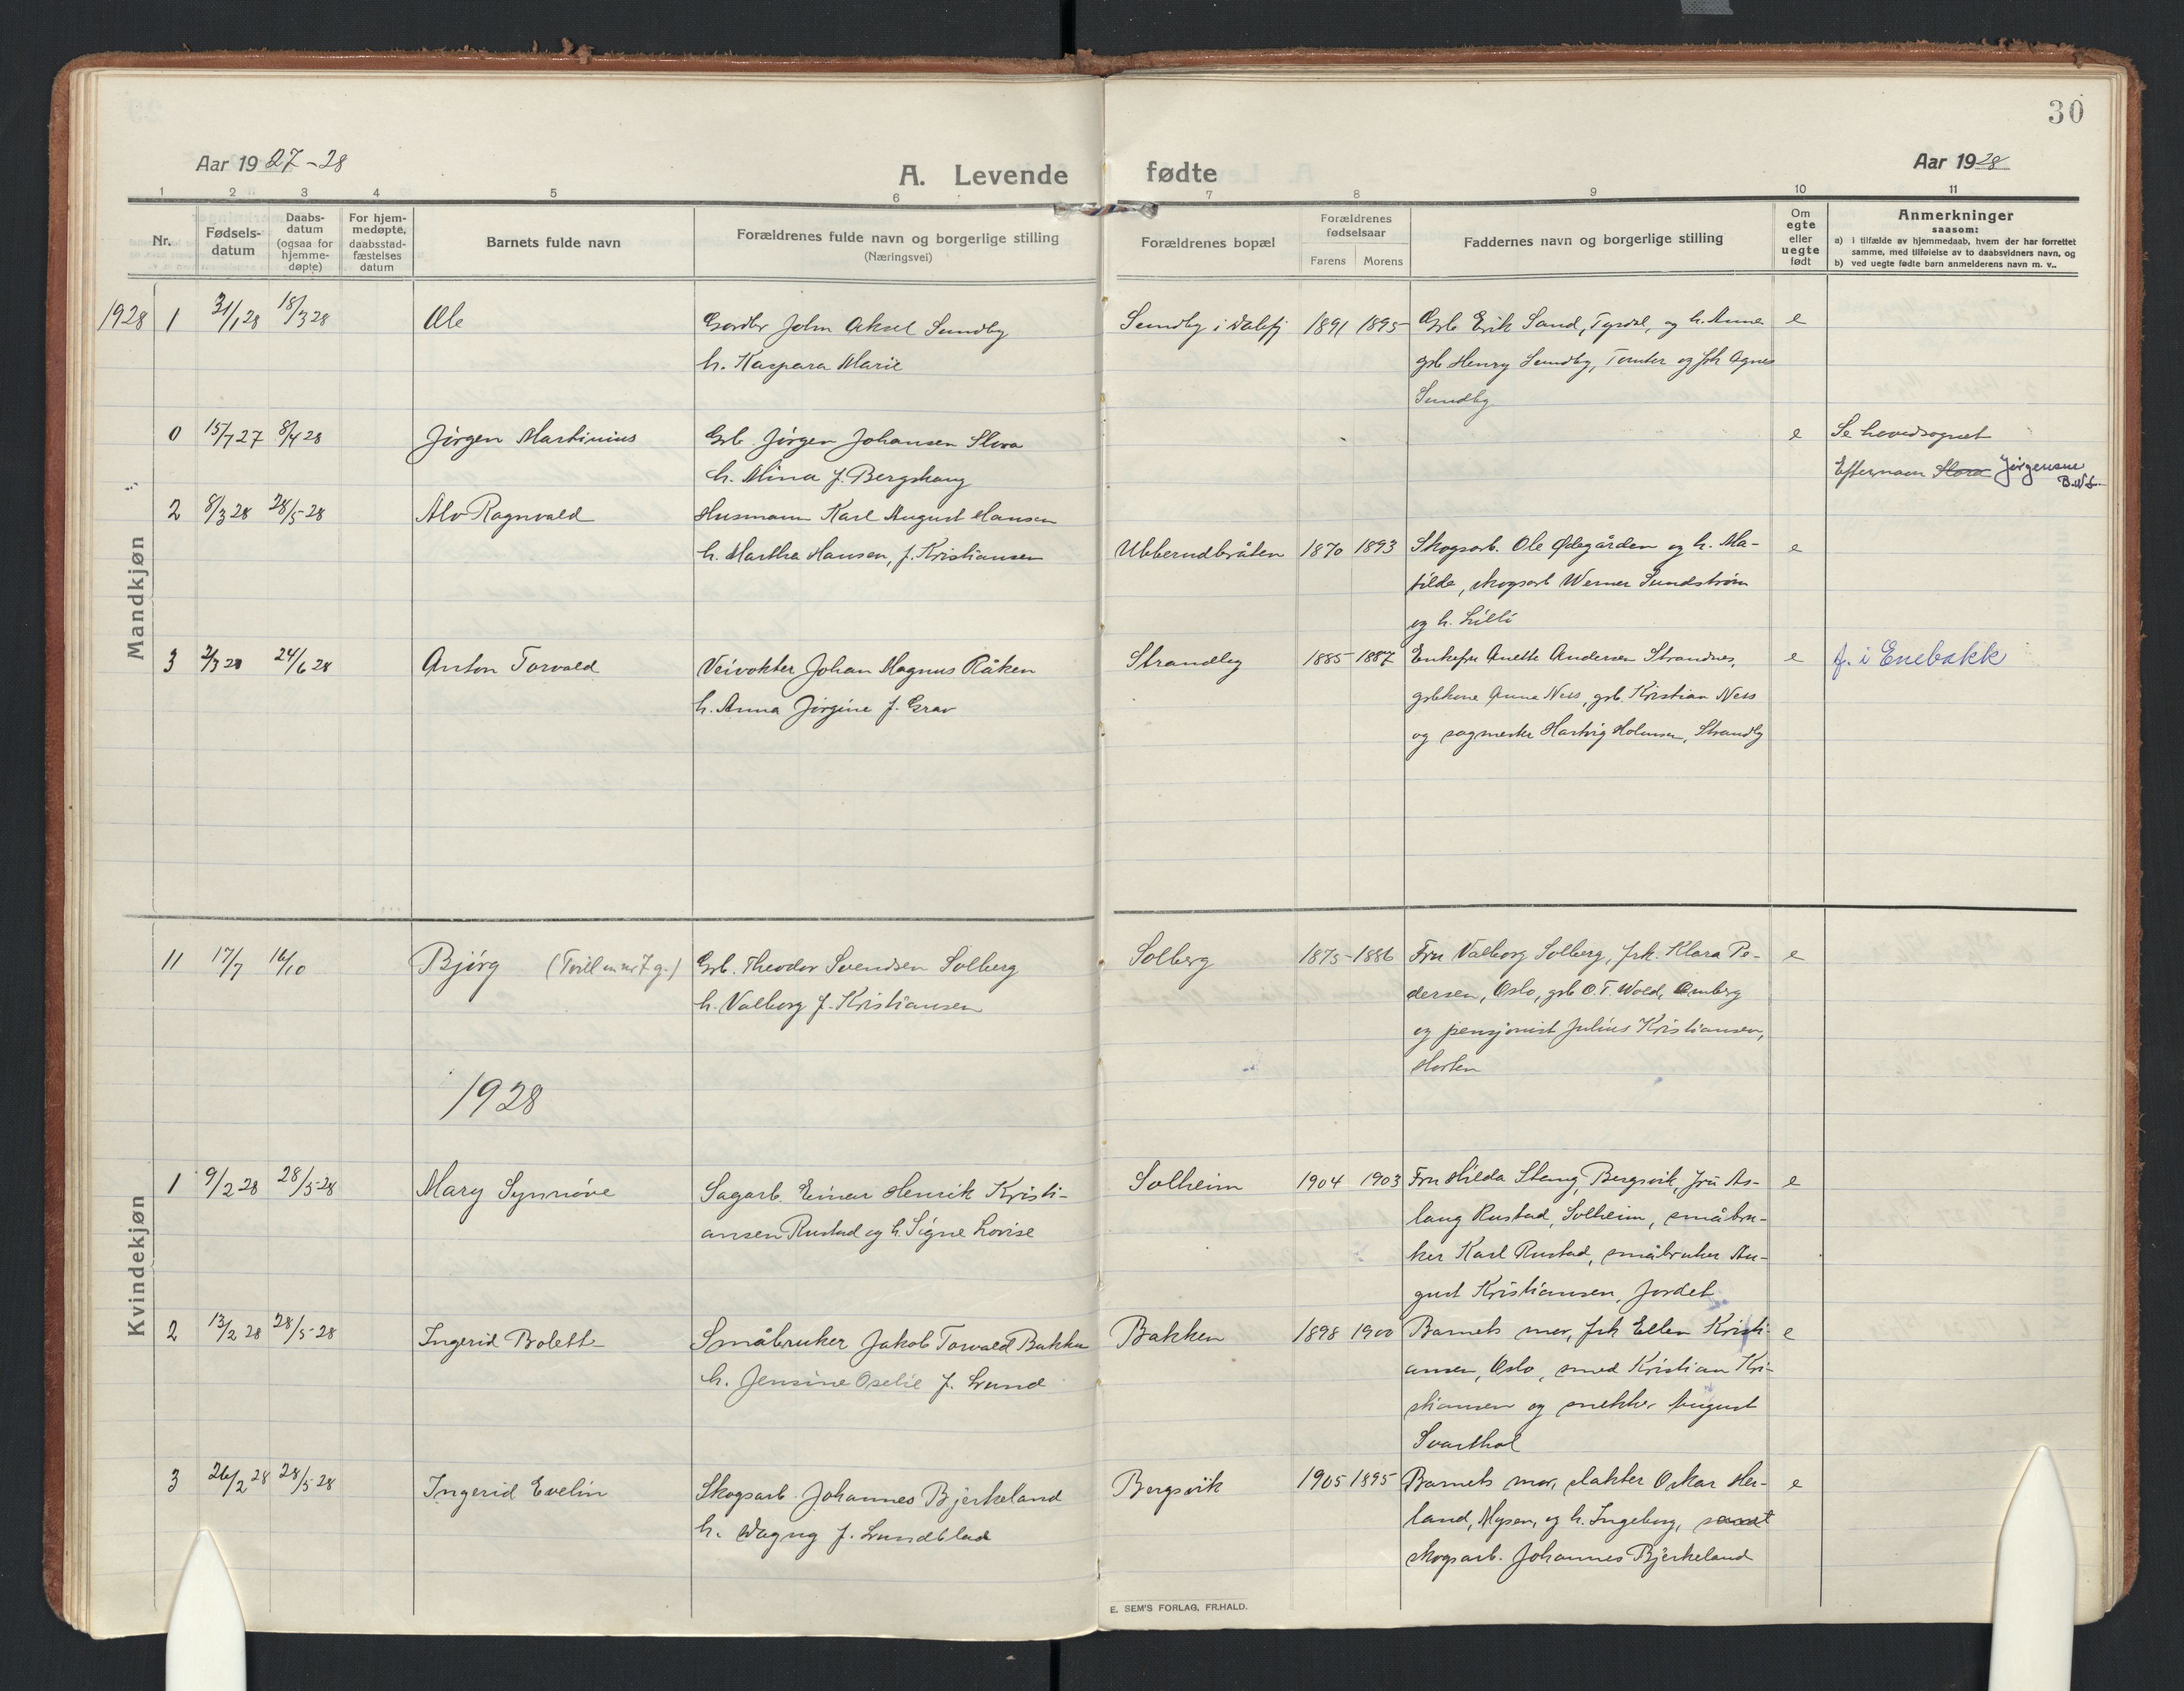 30
Aar 1927-28
A. Levende fødte
Aar 1928
1 2 3 4 5 6 7 8 9 10 11
Nr.
Fødsels-
datum
Daabs-
datum
(ogsaa for
hjemme-
døpte)
For hjem-
medøpte,
daabsstad-
fæstelses
datum
Barnets fulde navn
Forældrenes fulde navn og borgerlige stilling
(Næringsvei)
Forældrenes bopæl
Forældrenes
fødselsaar
Farens Morens
Faddernes navn og borgerlige stilling
Om
egte
eller
uegte
født
Anmerkninger
saasom:
a) i tilfælde av hjemmedaab, hvem der har forrettet
samme, med tilføielse av to daabsvidners navn, og
b) ved uegte fødte barn anmelderens navn m. v..
Mandkjøn
1928 1 31/1 28 18/3 28 Ole
Gardbr John Aksel Sundby
h. Kaspara Marie
Sundby i 1891 1895
Grb Erik Sand, og h. Anna
grb Henry Sundby, Tomter og frk Agnes
Sundby
e
0 15/7 27 8/4 28 Jørgen Martinius
Grb. Jørgen Johansen Slora
h. Mina f. Bergshaug
e
Se hovedsognet
Efternavn Slora Jørgensen
2 8/3 28 28/5-28 Alv Ragnvald
Husmann Karl August Hansen
h. Martha Hansen, f. Kristiansen
Ubberudbråten 1870 1893
Skogsarb. Ole Ødegården og h. Ma-
tilde, skogsarb Werner Sundstrøm
og h. Lilli
e
3 2/3 28 24/6 28 Anton Torvald
Veivokter Johan Magnus Råken
h. Anna Jørgine f. Grav
Strandby 1885 1887
Enkefru Anette Andersen Strandnes,
grbkone Anna Ness, grb. Kristian Ness
og sagmester Hartvig Holmsen, Strandby
e
f. i Enebakk
Kvindekjøn
11 17/7 16/10 Bjørg (Tvill m nr 7 g.)
Grb. Theodor Svendsen Solberg
h. Valborg f. Kristiansen
Solberg 1875 1886
Fru Valborg Solberg, frk. Klara Pe-
dersen, Oslo, grb O.T. Wold, Omberg
og pensjonist Julius Kristiansen,
Horten
e
1928
1 9/2 28 28/5-28 Mary Synnøve
Sagarb. Einar Henrik Kristi-
ansen Rustad og h. Signe Lovise
Solheim 1904 1903
Fru Hilda Steng, Bergsvik, fru As-
laug Rustad, Solheim, småbru-
ker Karl Rustad, småbruker Au-
gust Kristiansen, Jordet
e
2 13/2 28 28/5-28 Ingerid Bolette
Småbruker Jakob Torvald Bakken
h. Jensine Oselie f. Lund
Bakken 1898 1900
Barnets mor, frk Ellen Kristi-
ansen, Oslo, smed Kristian Kri-
stiansen og snekker August
Svarthol
e
3 26/2 28 28/5-28 Ingerid Evelin
Skogsarb. Johannes Bjerkeland
h. Dagny f. Lundblad
Bergsvik 1905 1895
Barnets mor, slakter Oskar Her-
land, Mysen, og h. Ingeborg, samt
skogsarb. Johannes Bjerkeland
e
E. SEM'S FORLAG, FR.HALD.